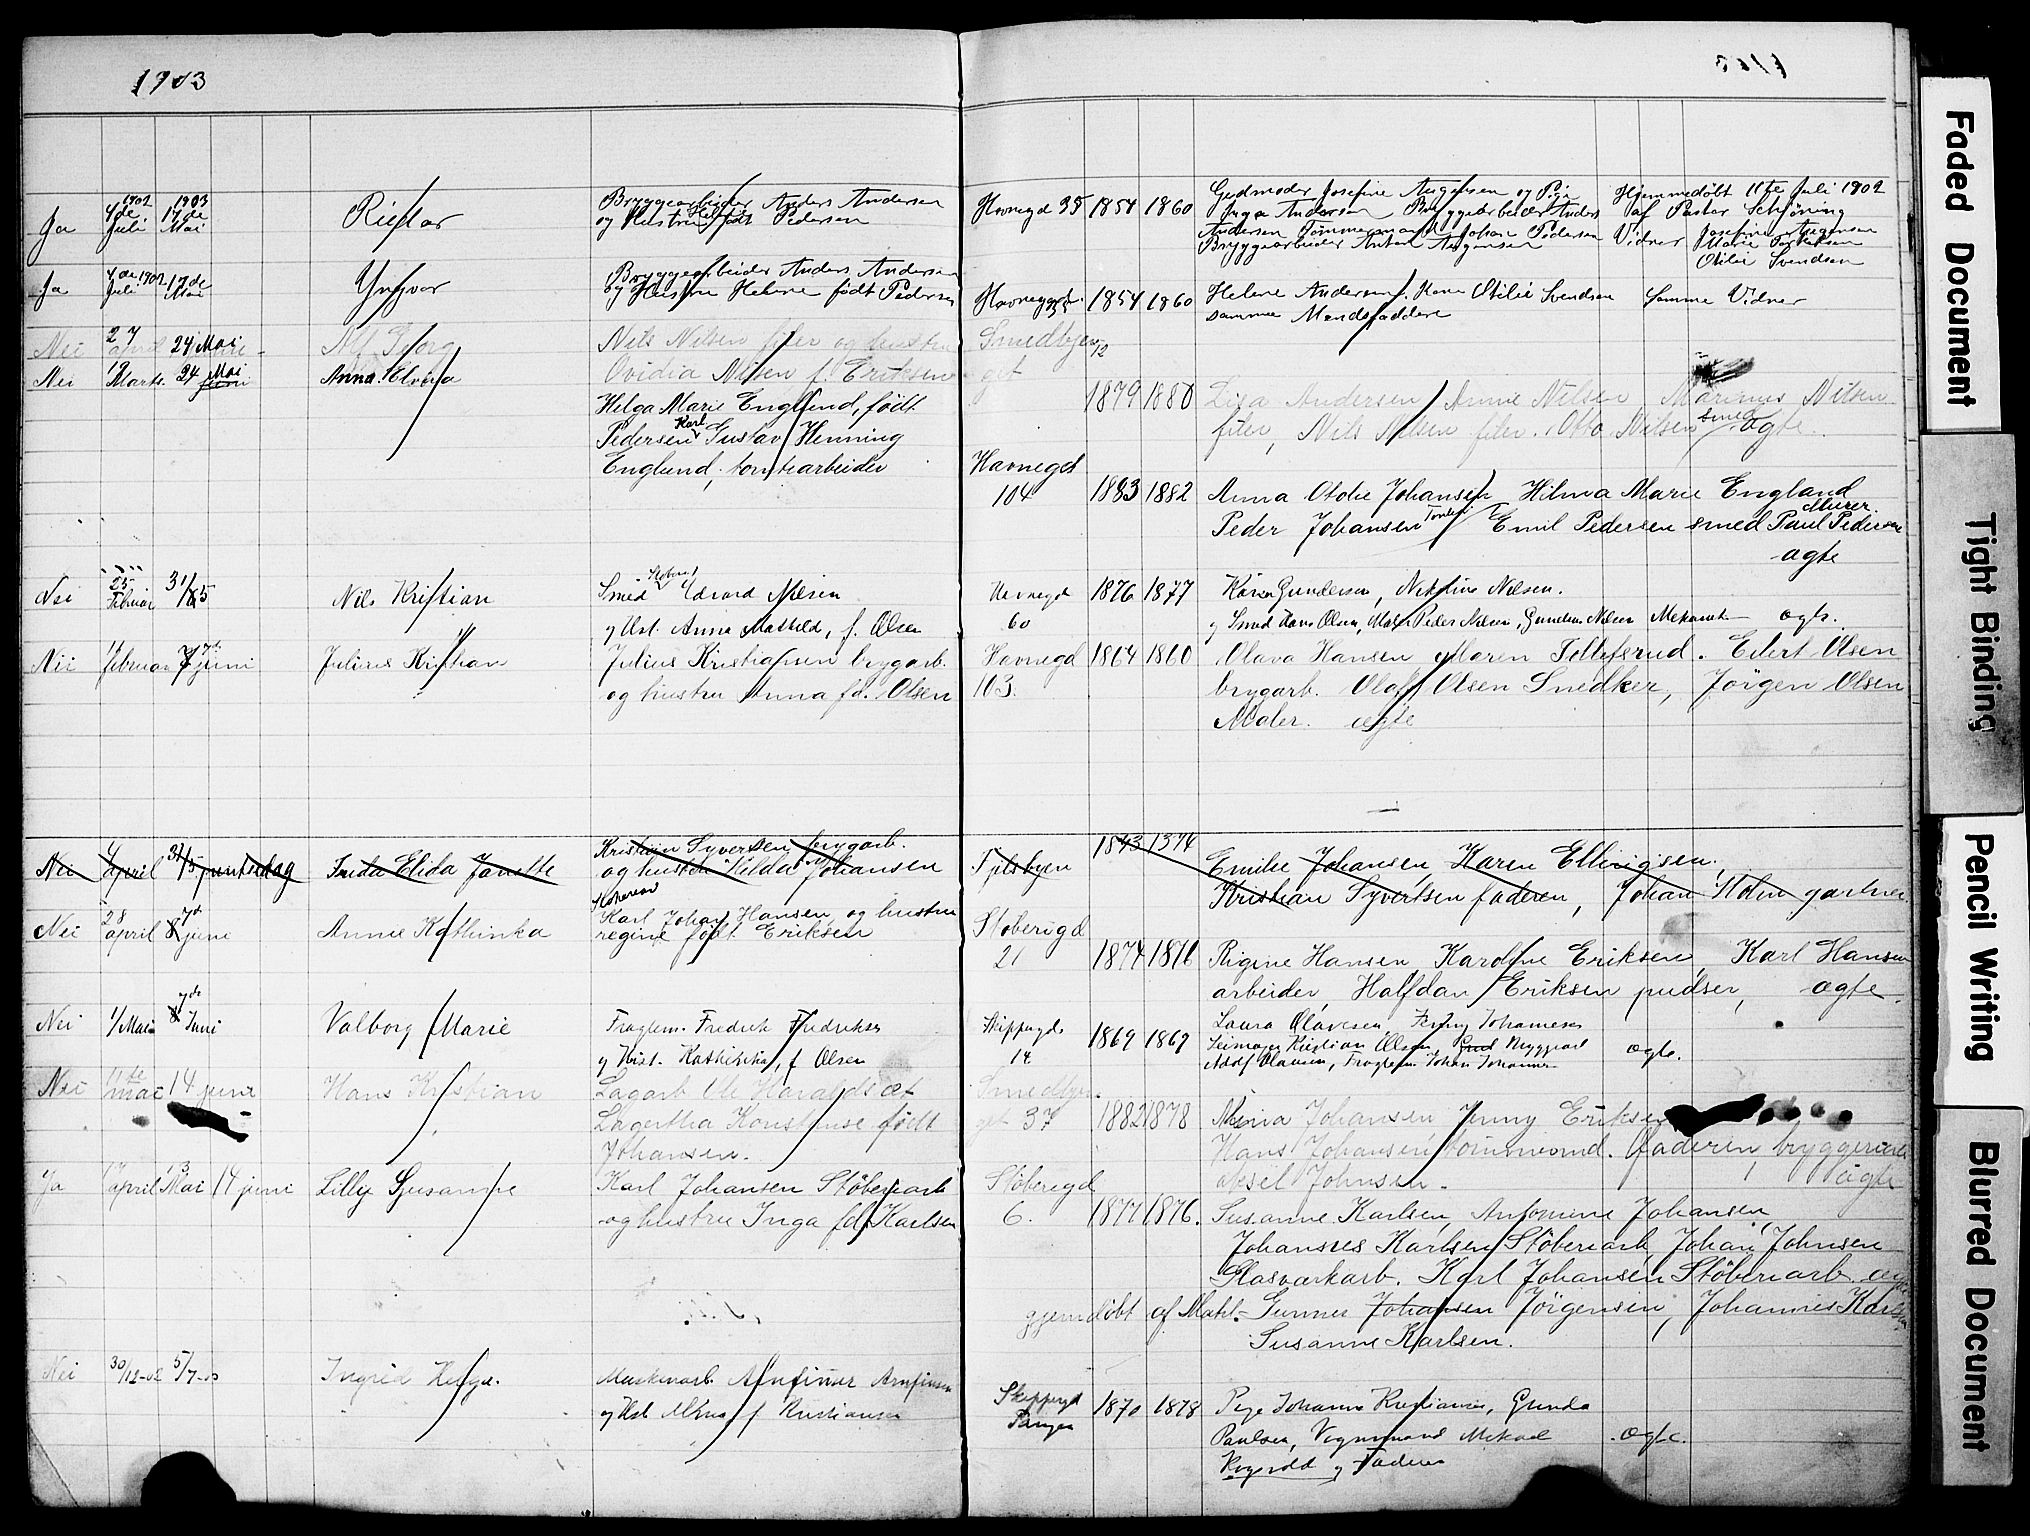 1903
Ja
4de 1902
Juli
1903
17de
Mai
Bryggearbeider Anders Andersen
og Hustru Helene født Pedersen
Ja
4de 1902
Juli
17de
Mai
Yngvar
Bryggearbeider Anders Andersen
og Hustru Helene født Pedersen
Nei
27
april
24 Mai
Alf Georg
Nils Nilsen filer og hustru
Ovidia Nilsen f. Eriksen
Nei
19
Marts
24 Mai
Anna Elvira
Helga Marie Englund, født
Pedersen Karl Gustav Henning
Englund, tomtearbeider
Nei
25
Februar
31/5
Nils Kristian
Smed Edvard Nilsen
og Hst. Anna Mathild, f. Olsen
Nei
Februar
7 juni
Julius Kristian
Julius Kristiansen brygarb.
og hustru Anna fd. Olsen
Nei
april
31/5
Frida Elida Janette
Kristian Syversen brygarb.
og hustru Hilda Johansen
Nei
28
april
7de
juni
Annie Kathinka
Karl Johan Hansen og hustru
regine født Eriksen
Nei
1/Mai
7de
Juni
Valborg Marie
Fredrik Fredriksen
og Hst. Kathinka, f Olsen
Nei
11te
mai
14 juni
Hans Kristian
Lagarb Ole Haralds et
Lagertha Konstanse født
Johansen.
Ja
april
13
Mai
14 juni
Lilly Susanne
Karl Johansen Støberiarb
og hustru Inga fd. Karlsen
Nei
30/12-02
5/7-03
Ingrid Helga.
Maskinarb. Arnfinner Arnfinsen
og Hst. f Kristiansen
Havnegd 35
1854
1860
Gudmoder Josefine Augensen og Pige
Inga Andersen Bryggearbeider Anders
Andersen Tømmermand Johan Pedersen
Bryggearbeider Anton Augensen
Hjemmedøbt 11te Juli 1902
af Pastor Schjøning
Vidner Josefine Augensen
Marie Torkelsen
Otilie Svendsen
Havnegd.
35
1854
1860
Helene Andersen, Otilie Svendsen
samme Mandsfaddere
Samme Vidner
Smedbjer
get
12
1879
1880
Lisa Andersen, Annie Nilsen, Marinus Nilsen
filer, Nils Nilsen filer. Otto Nilsen smed ægte.
Havnegd
104
1883
1882
Anna Otolie Johansen, Hilma Marie England
Peder Johansen Emil Pedersen smed Paul Pedersen Murer.
ægte
Havnegd
60
1876
1877
Karen Gundersen, Nilsen.
og Smed Hans Olsen, Maler Peder Nilsen, Nilsen Mekanik
ægte.
Havnegd
103.
1864
1860
Olava Hansen Maren Tollefsrud. Edert Olsen
brygarb. Olaf Olsen Snedker, Jørgen Olsen
Maler. ægte
Tylsbyen
1873
1874
Emilie Johansen, Karen Ellingsen,
Kristian Syvertsen faderen, Johan Holm gartner
Støberigd
21
1874
1876
Rigine Hansen, Karoline Eriksen, Karl Hansen
arbeider, Halfdan Eriksen pudser, ægte.
Skippergd.
14
1869
1869
Laura Olavesen, Jenny Johannesen
Kristian Olsen,
Adolf Olausen, Johan Johannesen
ægte.
Smedbjer
get 37
1882
1878
Mina Johansen, Jenny Eriksen
Hans Johansen tømmermd. faderen, bryggeriarb
aksel Johnsen.
ægte
Støberigd
6.
1877
1876.
Susanne Karlsen, Antomine Johansen,
Johannes Karlsen Støberiarb, Johan Johnsen
Glasværkarb. Karl Johansen Støberiarb. ægte
gjemdøbt af Gunner Johansen Jörgensen, Johannes Karlsen
Susanne Karlsen.
Skippergd
1870
1878
Pige Johanne Kristiansen, Gunda
Paulsen, Vognmand
og Faderen
ægte.
Faded Document
Tight Binding
Pencil Writing
Blurred Document